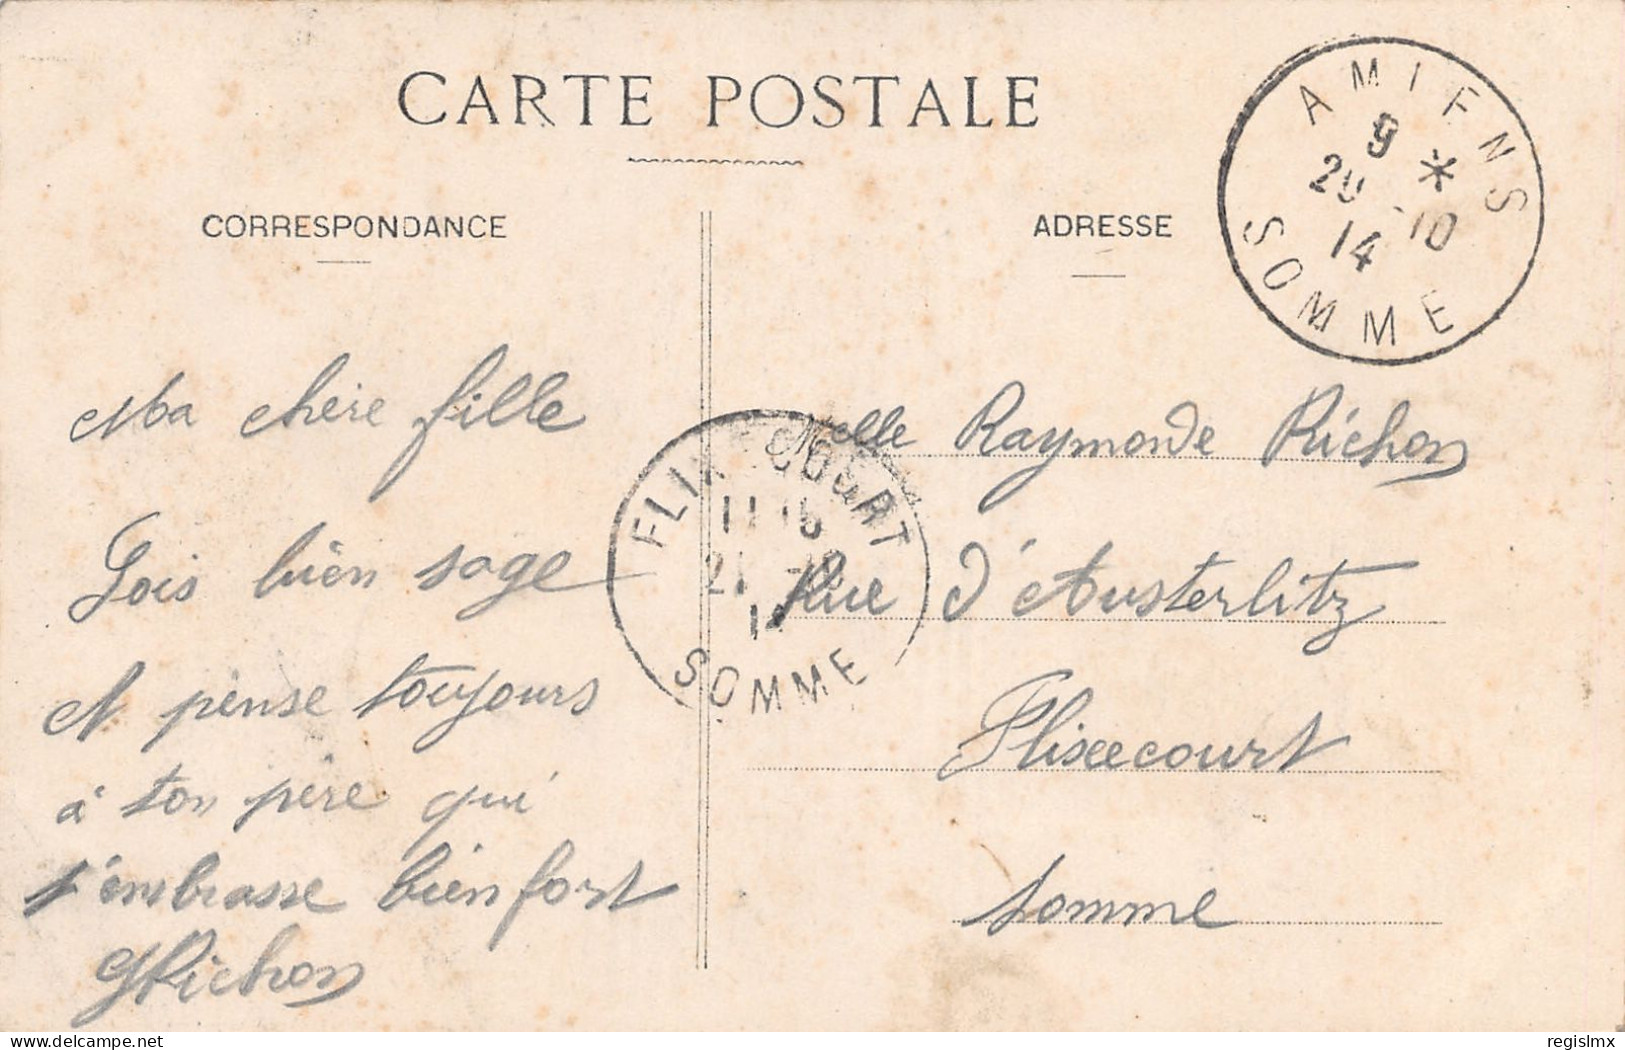 CARTE POSTALE
CORRESPONDANCE
ADRESSE
AMIENS
9 *
20 -10
14
SOMME
Ma chère fille
Sois bien sage
et pense toujours
à ton père qui
t'embrasse bien fort
GRichon
FLIXECOURT
11 15
21 -10
14
SOMME
Melle Raymonde Richon
Rue d'Austerlitz
Flixecourt
Somme
www.delcampe.net
regislmx